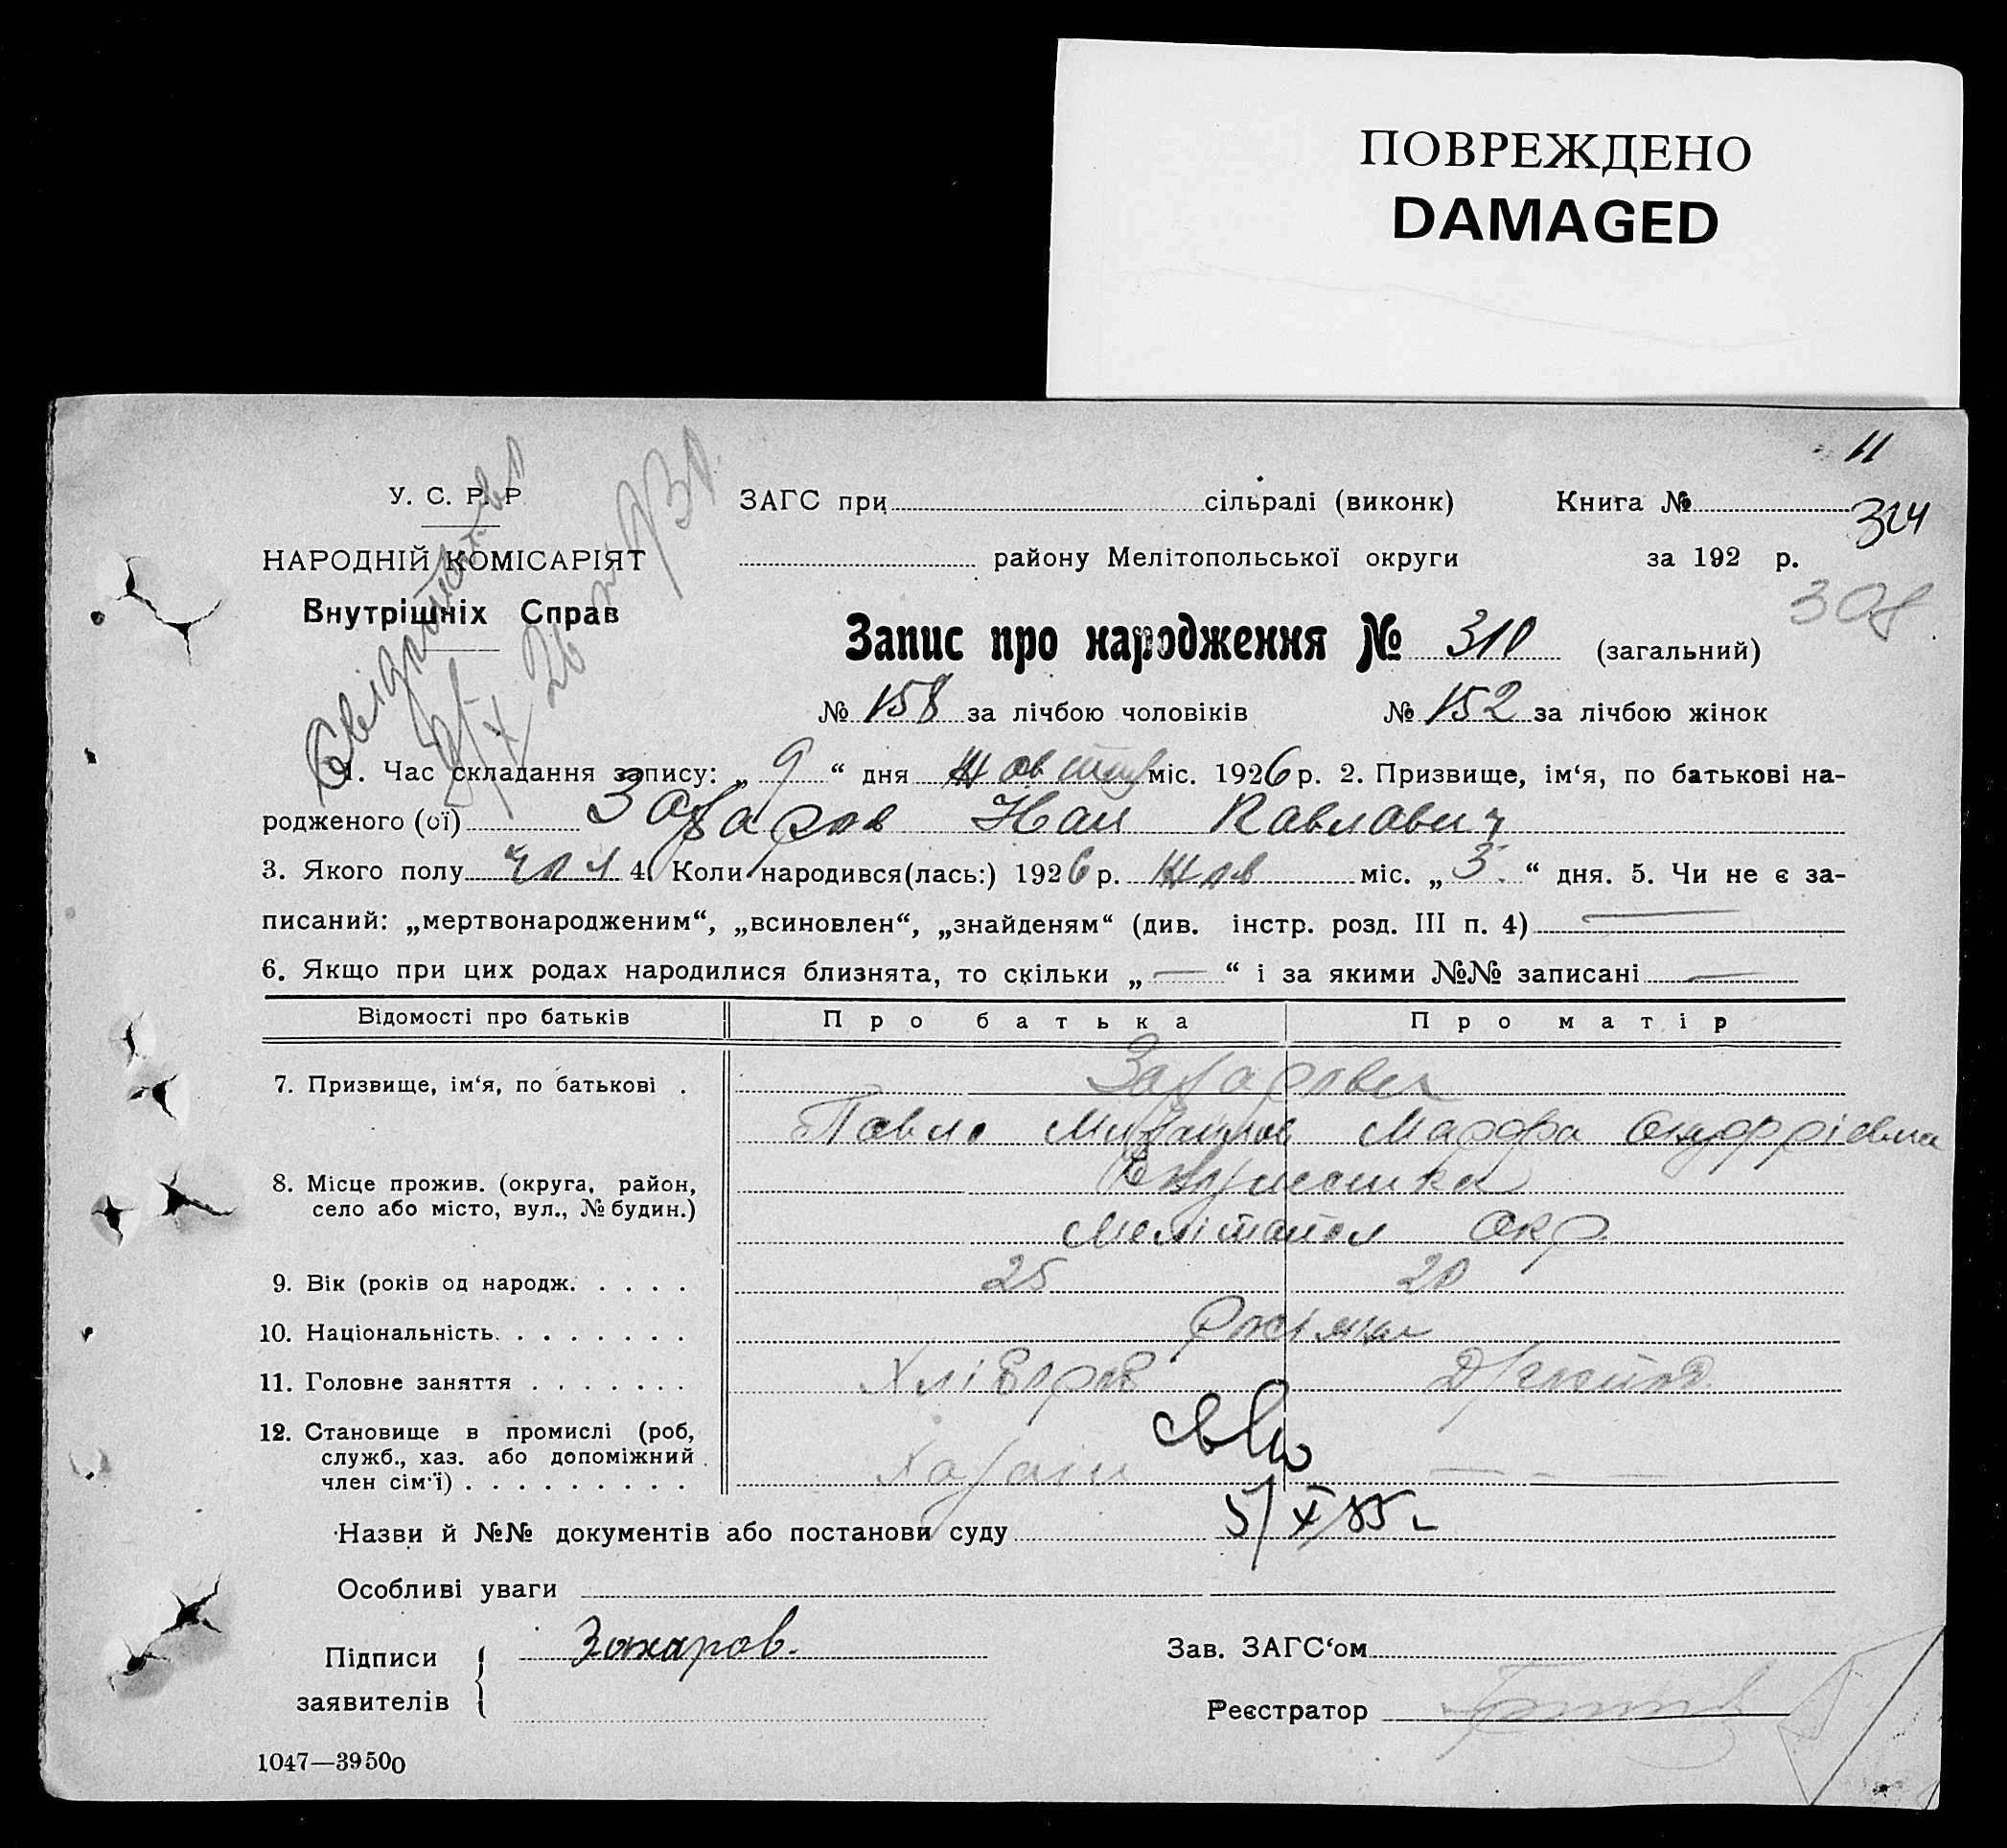 ПОВРЕЖДЕНО
DAMAGED
11
У. С. Р. Р
ЗАГС при сільраді (виконк) Книга №
324
НАРОДНІЙ КОМІСАРІЯТ
району Мелітопольської округи за 192 р.
Внутрішніх Справ
308
Запис про народження № 310 (загальний)
№ 158 за лічбою чоловіків № 152 за лічбою жінок
1. Час складання запису: „ 9 “ дня Жовтня міс. 1926 р. 2. Призвище, ім‘я, по батькові на-
родженого (ої) Павлович
3. Якого полу чол 4. Коли народився(лась:) 1926 р. Жов міс. „ 5 “ дня. 5. Чи не є за-
писаний: „мертвонародженим“, „всиновлен“, „знайденям“ (див. інстр. розд. III п. 4) —
6. Якщо при цих родах народилися близнята, то скільки „ — “ і за якими №№ записані —
Відомості про батьків Про батька Про матір
7. Призвище, ім‘я, по батькові .
Павло Марфа
8. Місце прожив. (округа, район,
село або місто, вул., № будин.)
Мелітопол окр
9. Вік (років од народж. . . . . 25 20
10. Національність. . . . . . . .
11. Головне заняття . . . . . . . Хлібороб
12. Становище в промислі (роб,
служб., хаз. або допоміжний
член сім‘ї) . . . . . . . . . Хазяін — - —
Назви й №№ документів або постанови суду 5/X 85 г
Особливі уваги
Підписи
заявителів
Захаров.
Зав. ЗАГС‘ом
Реєстратор
1047—39500